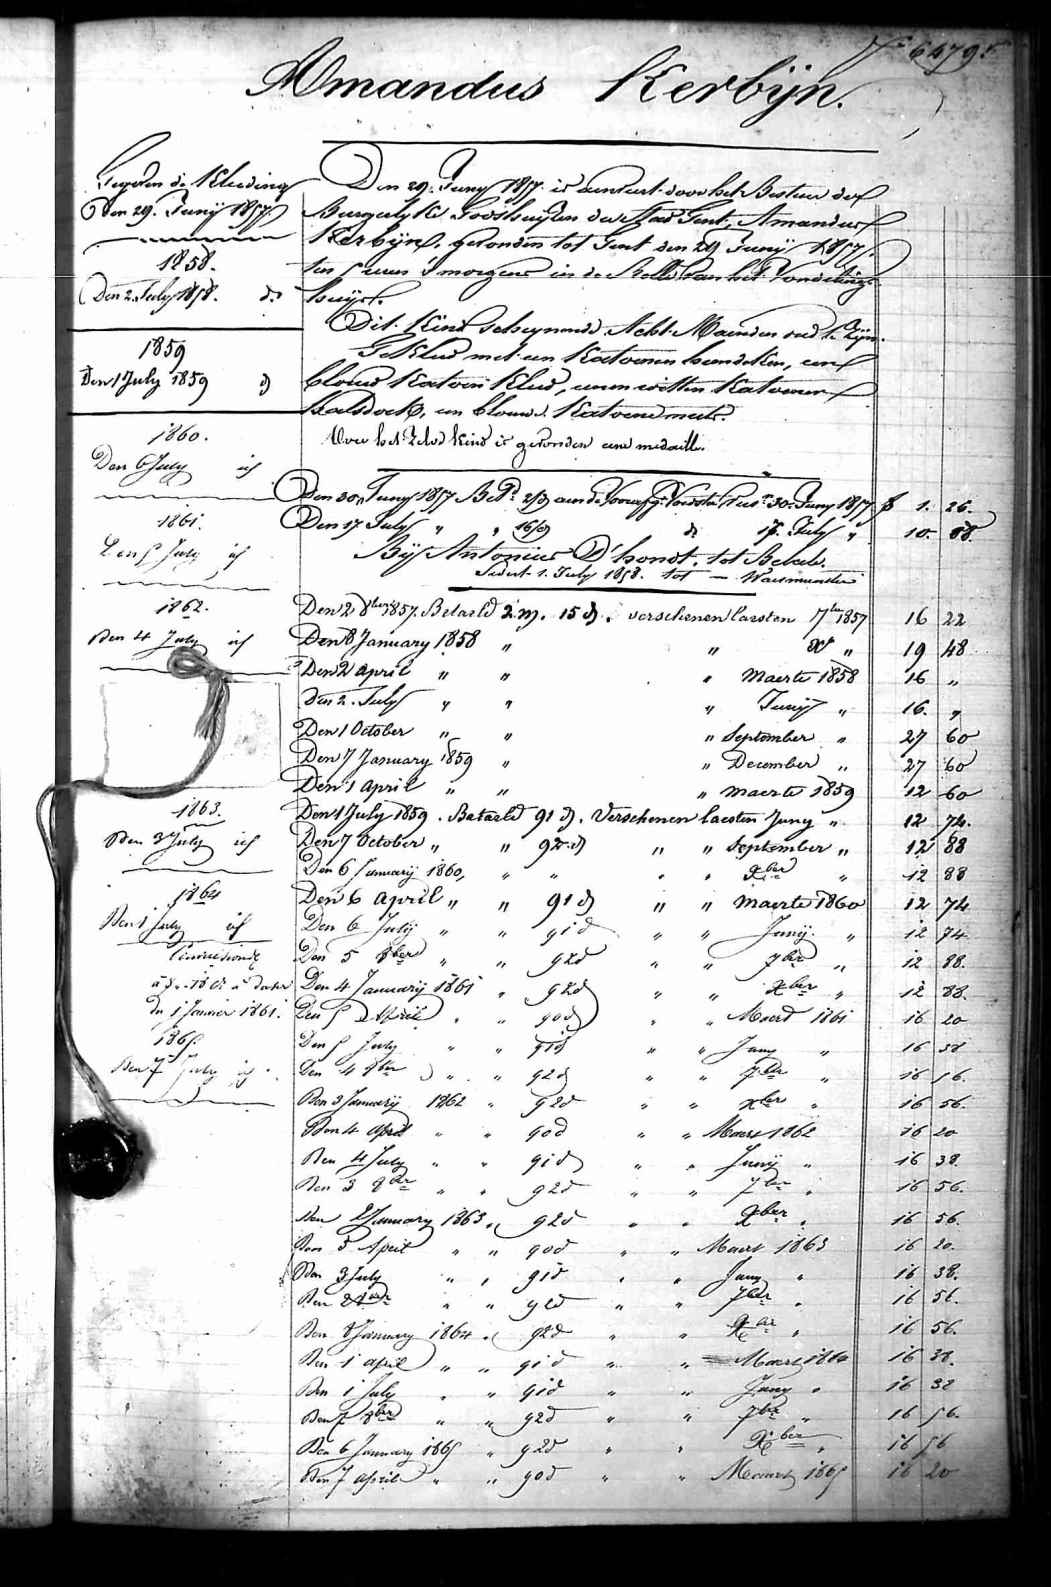 Amandus Kerbÿn.
Gegeven de Kleeding
Den 29. Junij 1857.
1858.
Den 2 July 1858. d°
1859
Den 1 July 1859 d°
1860.
Den 6 July id
1861.
Den 5 July id
1862.
Den 4 July id
1863.
Den 3 July id
1864
Den 1 July id
1865.
Den 7 July id
Den 29. Juny 1857. is door het Bestuer der
Burgerlyke Godshuyzen der Stad Gent, Amandus
Kerbÿn, gevonden tot Gent den 29 Junij 1857.
ten 5 uren 's morgens in de Rolle van het Vondeling-
huys.
Dit Kind schynende Acht Maenden oud te zyn.
Gekleed met een Katoenen hemdeken, een
blouw Katoen Kleed, eenen witten Katoenen
halsdoek, een blouwe Katoene muts.
Over het zelve kind is gevonden eene medaille.
Den 30. Juny 1857 30. Juny 1857 f 1. 26.
Den 17 July " " 16/d d° 17. July " 10. 08.
Bÿ Antonius D'hondt, tot Belcele.
Sedert 1. July 1858. tot — Waesmunster
Den 2 8ber 1857. Betaeld 2 m. 15 d. verschenen laesten 7ber 1857 16 22
Den 8 January 1858 " " Xr " 19 48
Den 2 april " " " maerte 1858 16 "
Den 2. July " " " Junij " 16. "
Den 1 October " " " September " 27 60
Den 7 January 1859 " " December " 27 60
Den 1 april " " " maerte 1859 12 60
Den 1 July 1859. Betaeld 91 d. Verschenen laesten Juny " 12 74.
Den 7 October " " 92 d " " September " 12 88
Den 6 Januarij 1860, " " " " Xber " 12 88
Den 6 april " " 91 d " " maerte 1860 12 74
Den 6 July " " 91 d " " Junij. " 12 74
Den 5 8ber " " 92 d " " 7ber " 12 88.
Den 4 Januarij 1861 " 92 d " " Xber " 12 88.
Den 5 April " " 90 d " " Maert 1861 16 20
Den 5 July " " 91 d " " Juny " 16 38
Den 4 8ber " " 92 d " " 7ber " 16 56.
Den 3 Januarij 1862 " 92 d " " Xber " 16 56.
Den 4 April " " 90 d " " Maert 1862 16 20
Den 4 July " " 91 d " " Junij " 16 38
Den 3 8ber " " 92 d " " 7ber " 16 56.
Den 2 January 1863 " 92 d " " Xber " 16 56.
Den 3 April " " 90 d " " Maert 1863 16 20.
Den 3 July " " 91 d " " Juny " 16 38.
Den 2 8ber " " 92 d " " 7ber " 16 56.
Den 8 January 1864 " 92 d " " Xber " 16 56.
Den 1 april " " 91 d " " Maert 1864 16 38.
Den 1 July " " 91 d " " Juny " 16 38
Den 7 8ber " " 92 d " " 7ber " 16 56.
Den 6 January 1865 " 92 d " " Xber " 16 56
Den 7 april " " 90 d " " Maert 1865 16 20